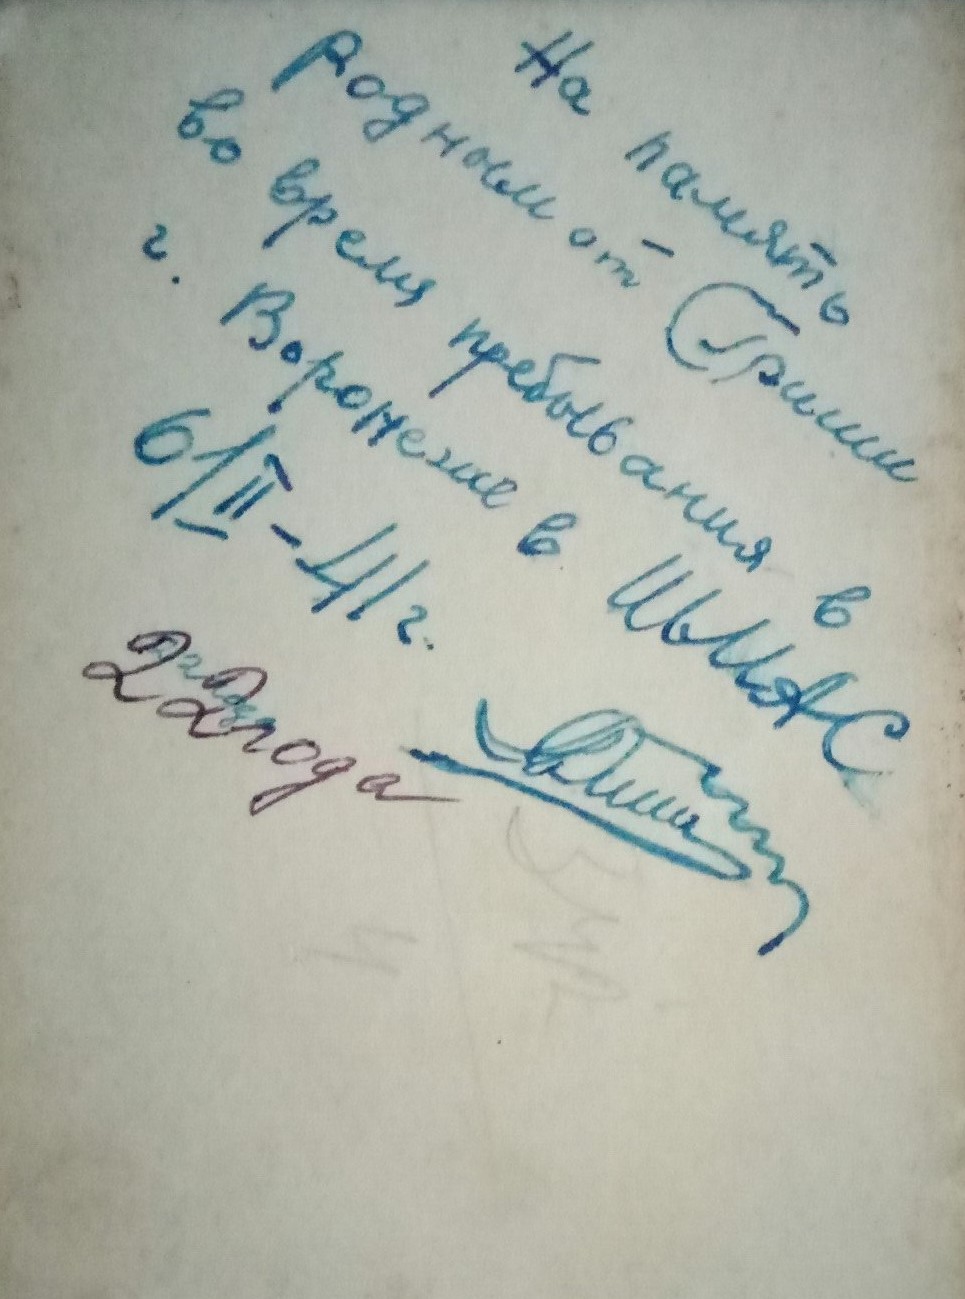 На память
родным от Гриши
во время пребывания в
г. Воронеже в ШМАС
6/II-41г.
22 года